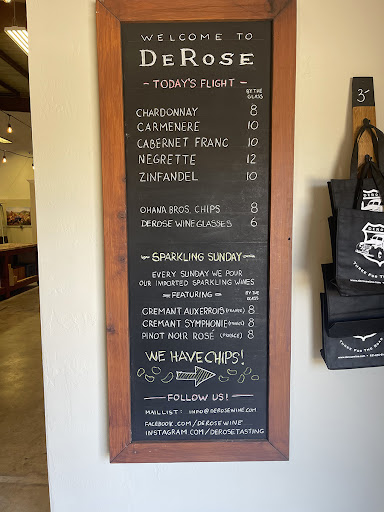 WELCOME TO
DEROSE
- TODAY'S FLIGHT -
BY THE
GLASS
CHARDONNAY 8
CARMENERE 10
CABERNET FRANC 10
NEGRETTE 12
ZINFANDEL 10
OHANA BROS. CHIPS 8
DEROSE WINE GLASSES 6
SPARKLING SUNDAY
EVERY SUNDAY WE POUR
OUR IMPORTED SPARKLING WINES
FEATURING
BY THE
GLASS
CREMANT AUXERROIS (FRANCE) 8
CREMANT SYMPHONIE (FRANCE) 8
PINOT NOIR ROSÉ (FRANCE) 8
WE HAVE CHIPS!
FOLLOW US!
MAILLIST: INFO@DEROSEWINE.COM
FACEBOOK.COM/DEROSEWINE
INSTAGRAM.COM/DEROSETASTING
3-